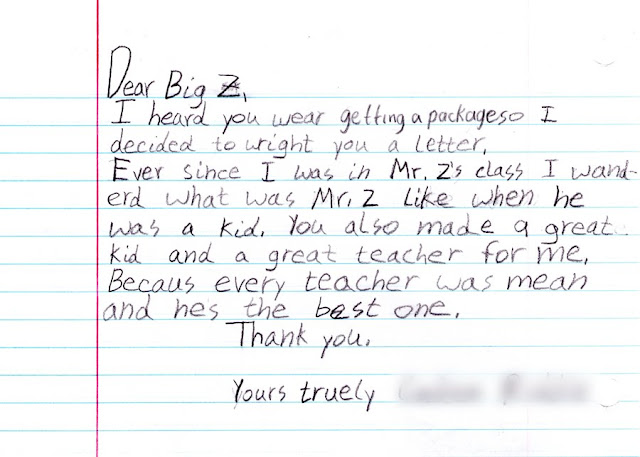 Dear Big Z,
I heard you wear getting a package so I
decided to wright you a letter.
Ever since I was in Mr. Z's class I wand-
erd what was Mr. Z like when he
was a kid. You also made a great
kid and a great teacher for me.
Becaus every teacher was mean
and hes the best one.
Thank you.
Yours truely